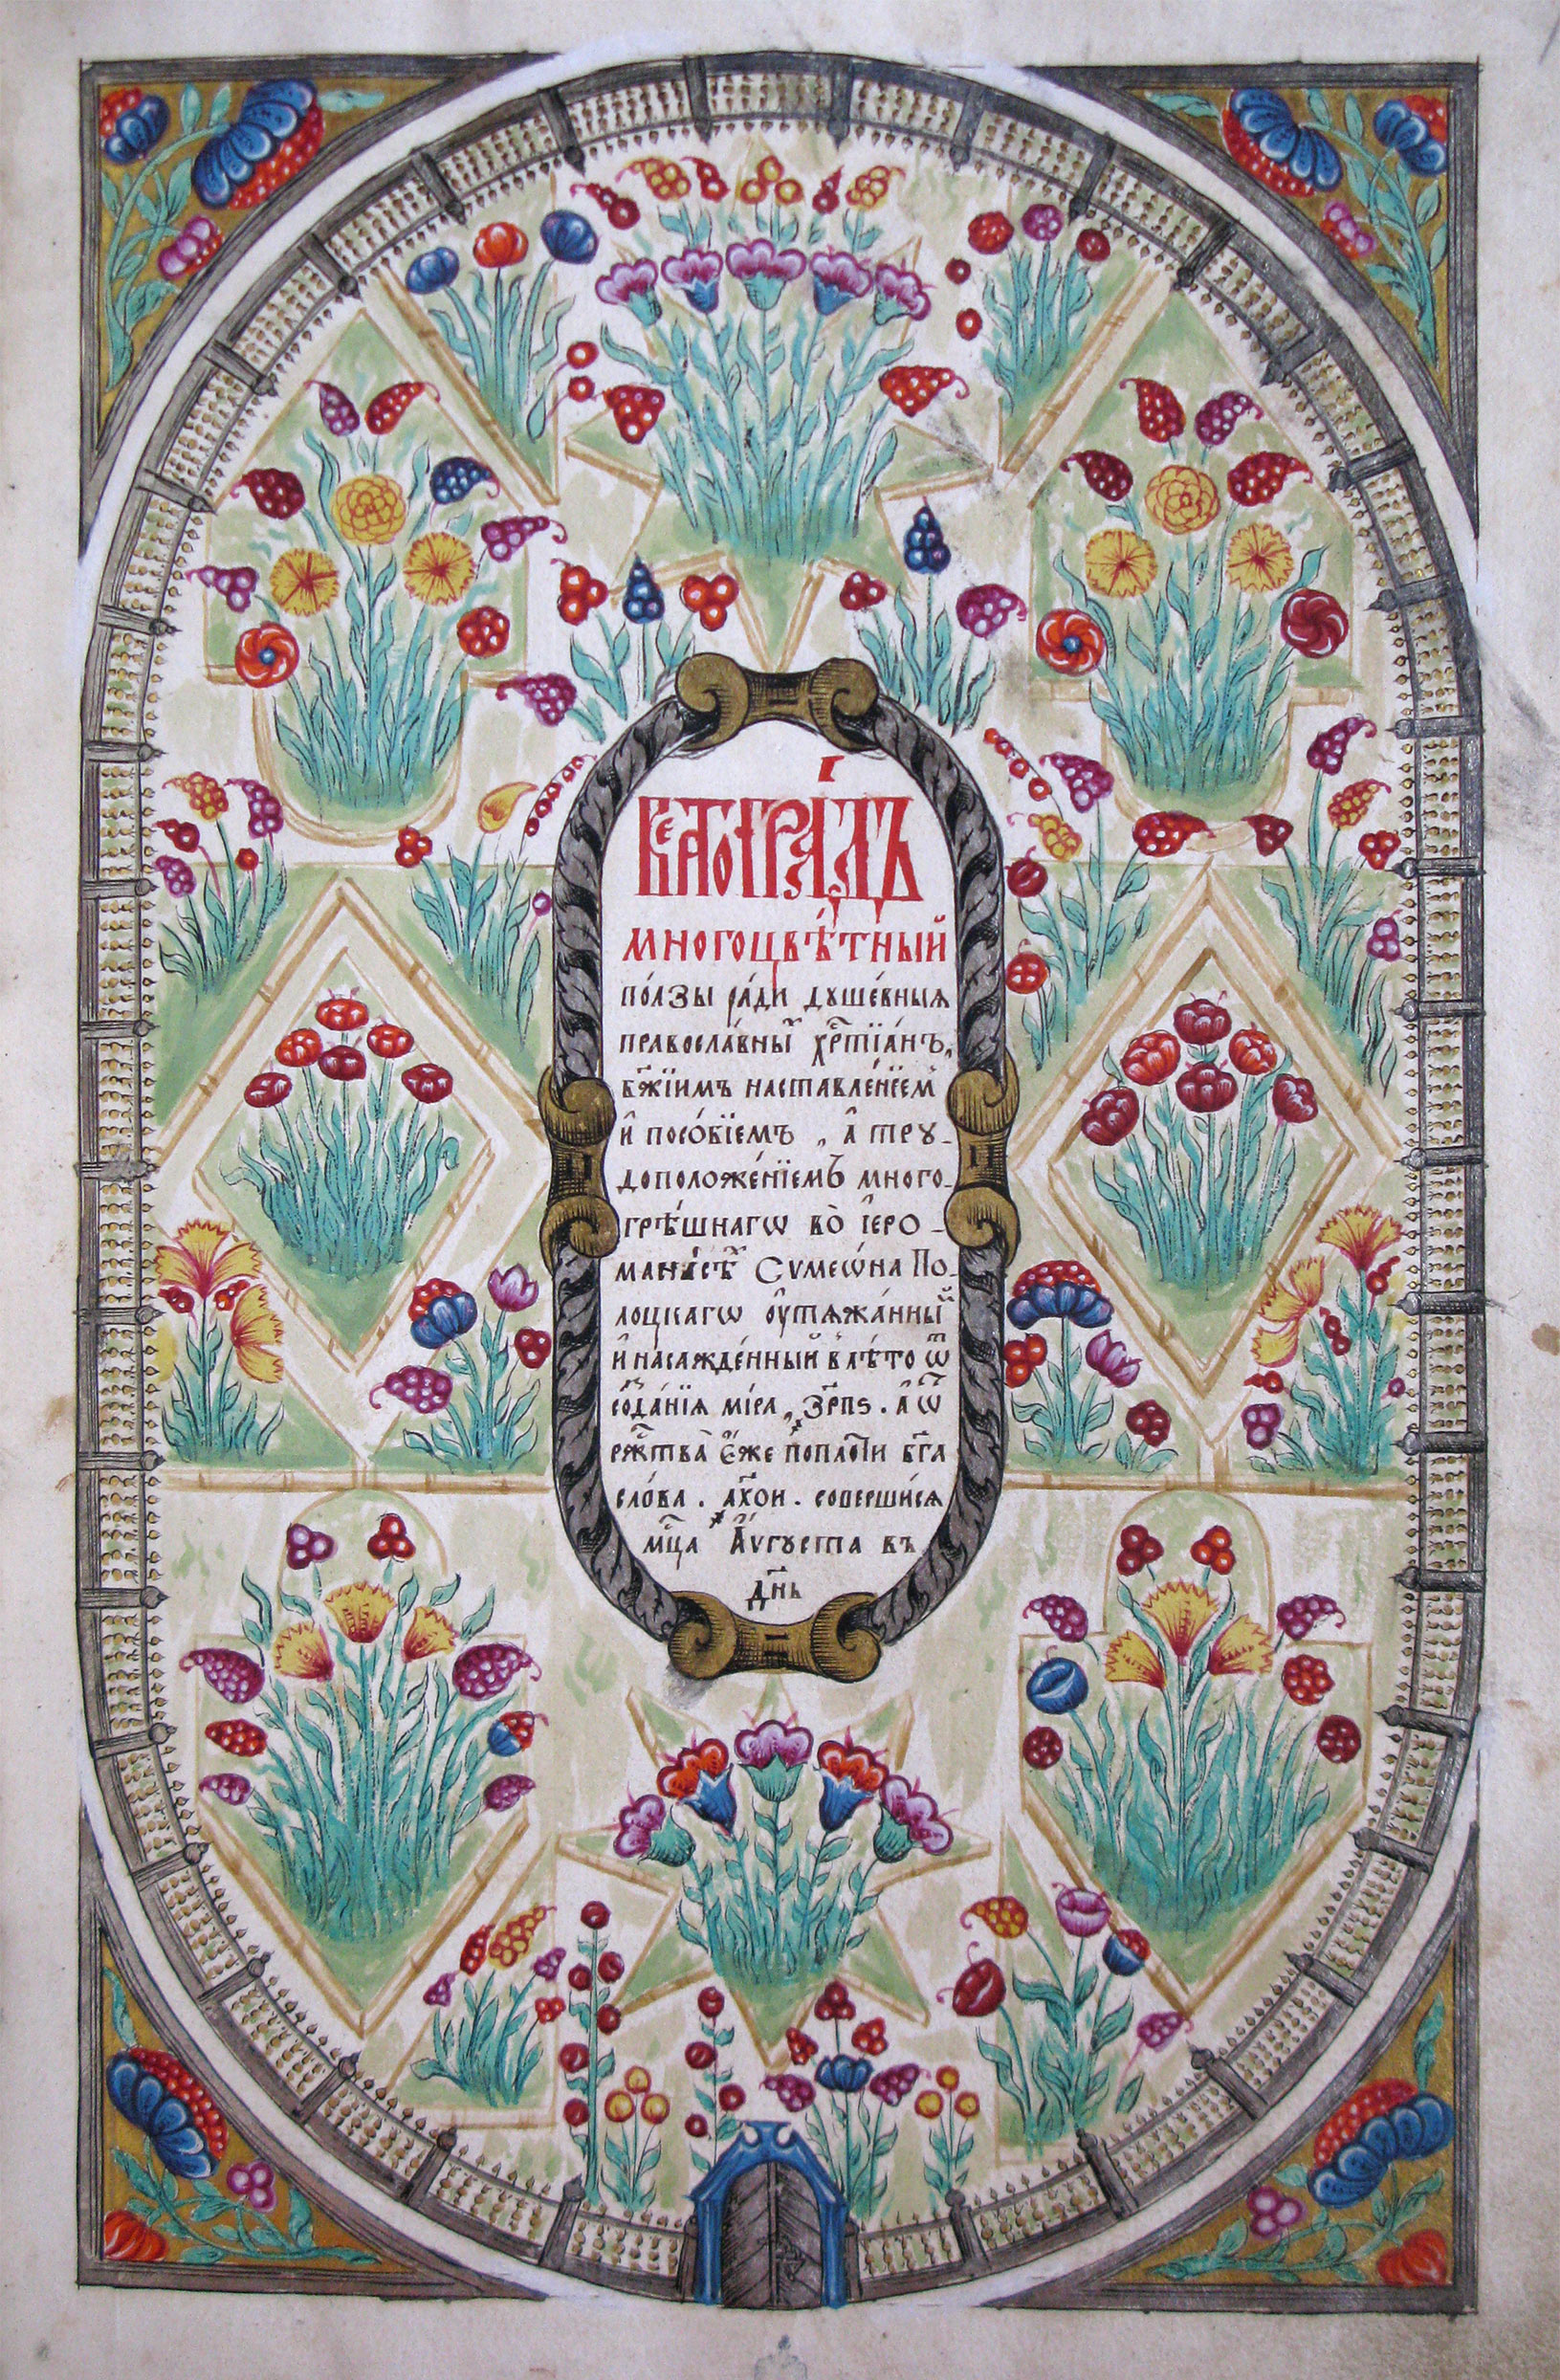 Вертогра́дъ
многоцвѣ́тный
по́лзы ра́ди душе́вныя
правосла́вны́х хр҃тїа́нъ,
бж҃їимъ наставле́нїем
и҆ посо́бїемъ, а҆ тру-
доположе́нїемъ много-
грѣ́шнагѡ во̀ і҆еро-
мона́сѣх Сѷмеѡ́на По-
лоцкагѡ ᲂу҆тѧжа́нны́й
и҆ насажде́нный в лѣ́то ѿ
созда́нїѧ мі́ра, ҂зр҃пѕ. а҆ ѿ
рж҃тва̀ є҆́же по пло́ти бг҃а
сло́ва. ҂ахо҃и. соверши́сѧ
мц҃а а҆́ѵгуста въ
дн҃ь